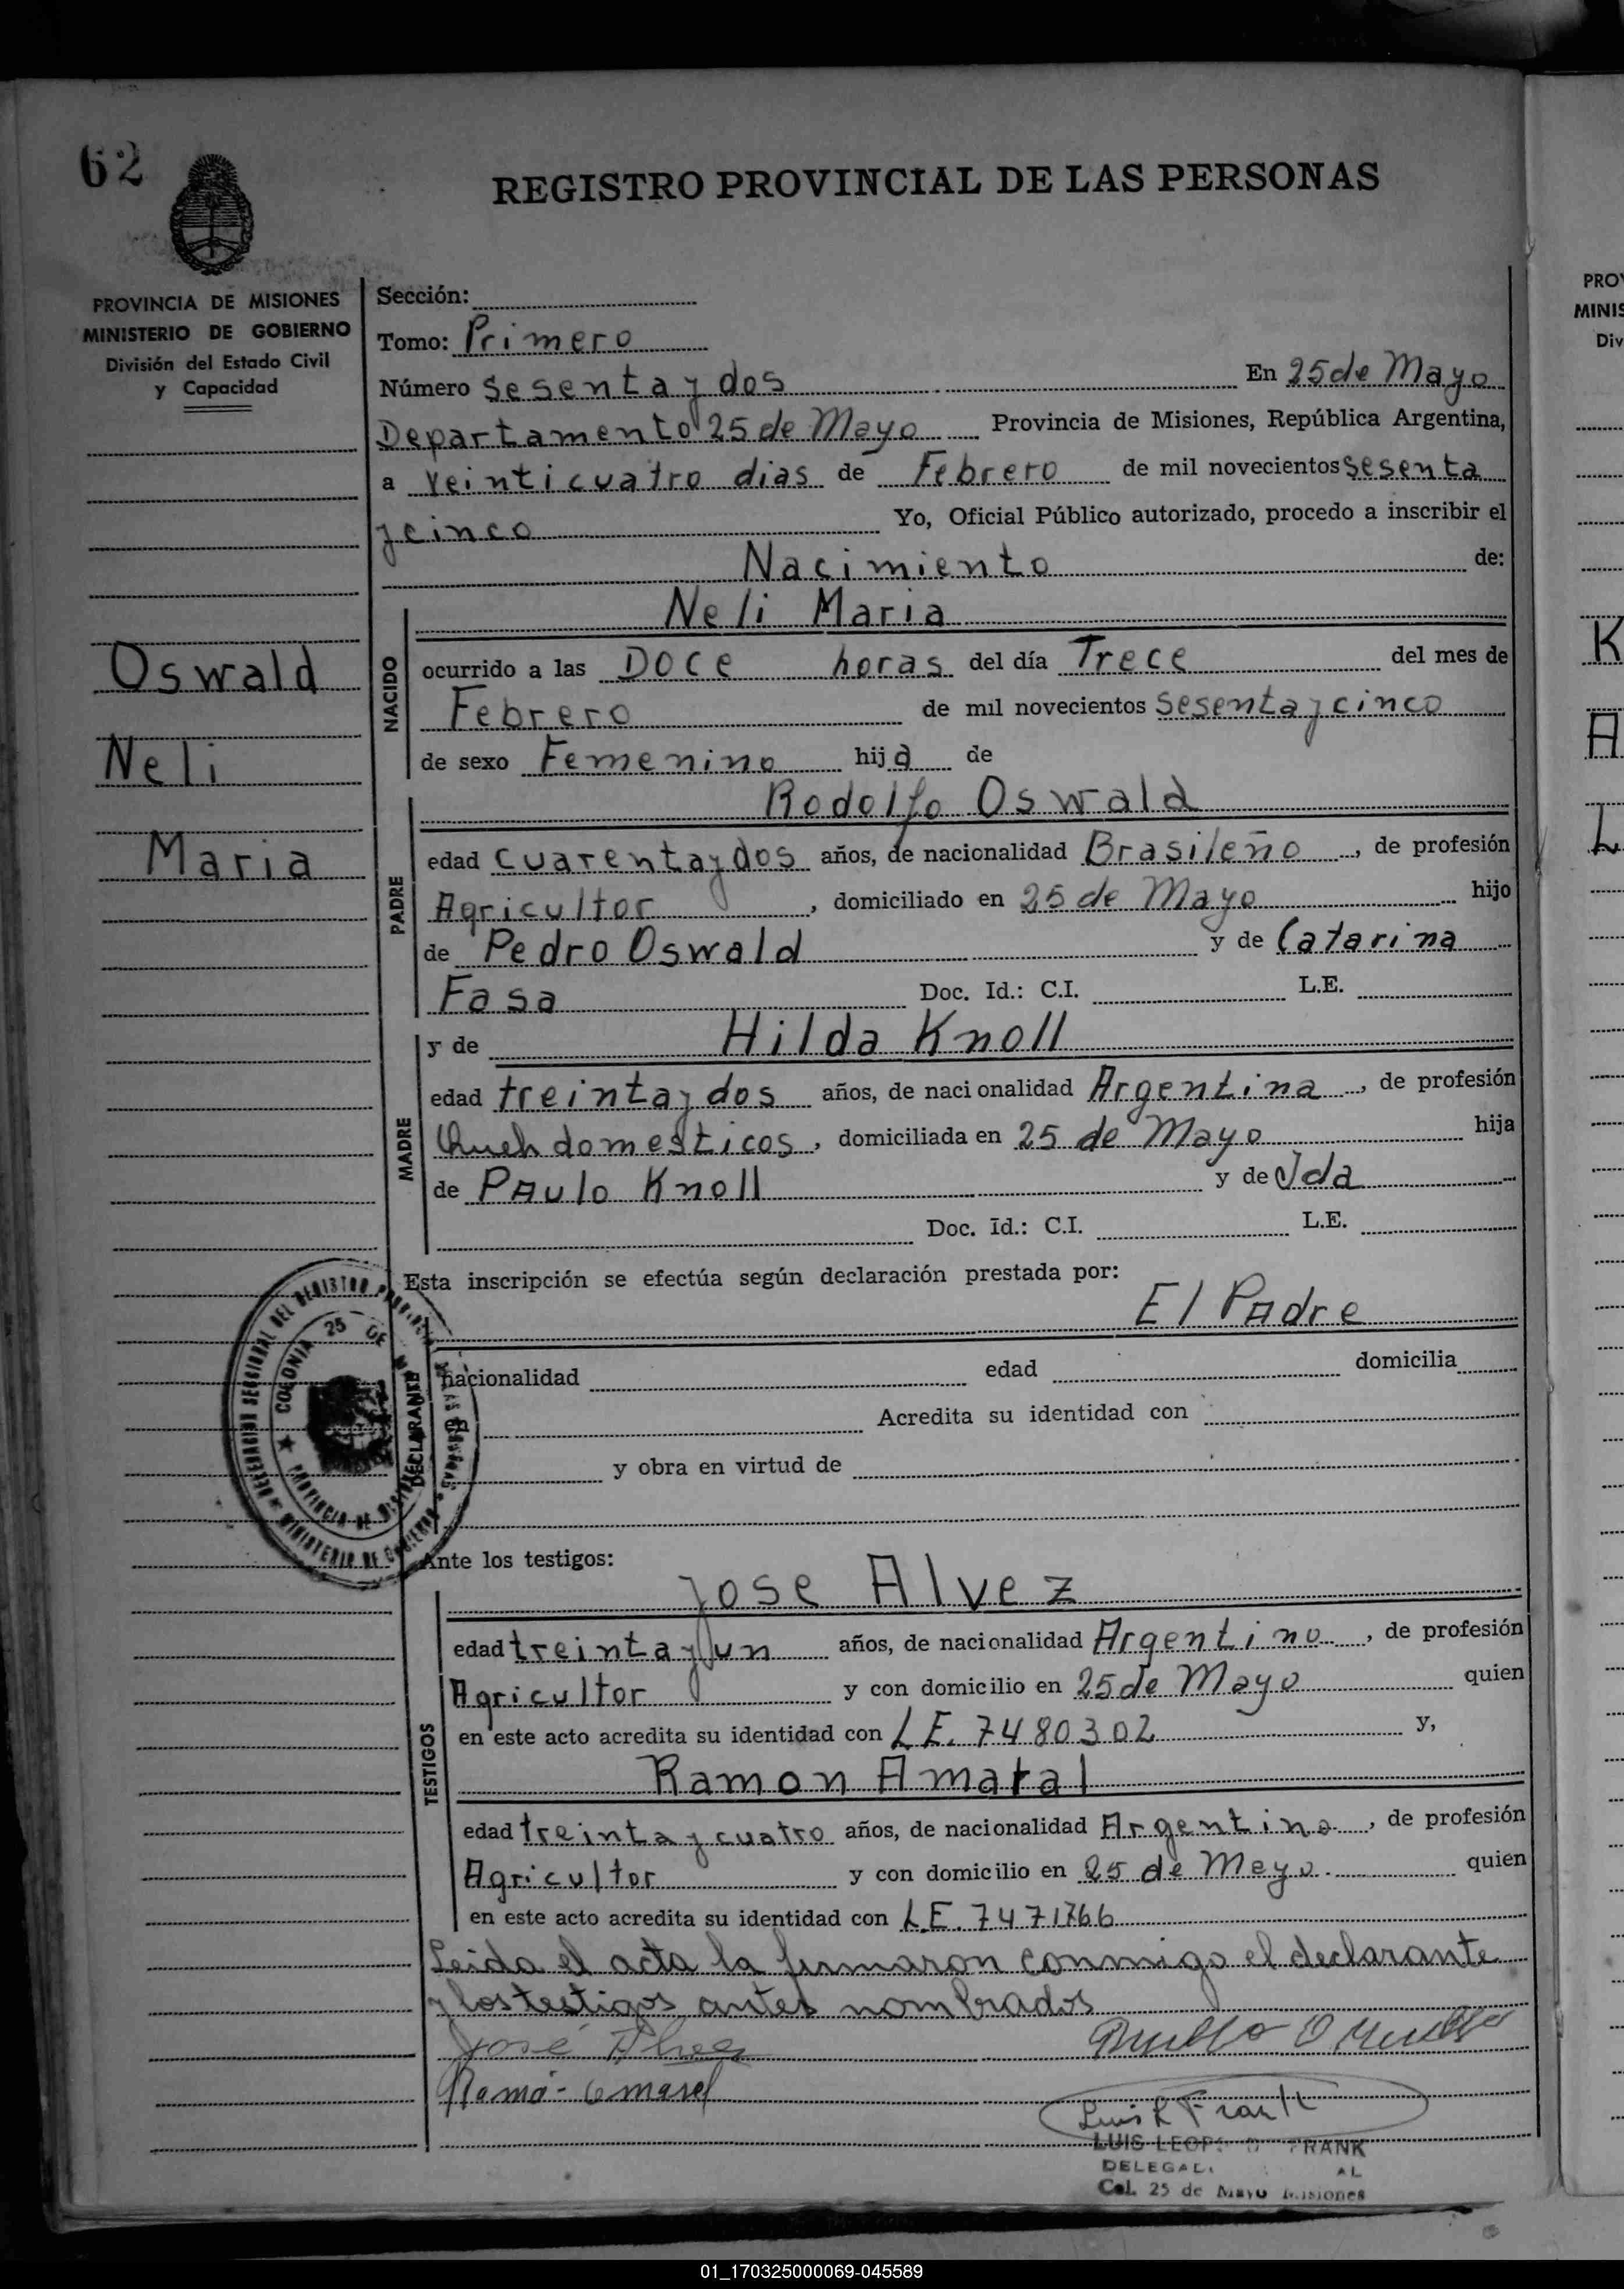 62
REGISTRO PROVINCIAL DE LAS PERSONAS
PROVINCIA DE MISIONES
MINISTERIO DE GOBIERNO
División del Estado Civil
y Capacidad
Oswald
Neli
Maria
Sección:
Tomo: Primero
Número Sesenta y dos En 25 de Mayo
Departamento 25 de Mayo Provincia de Misiones, República Argentina,
a Veinticuatro dias de Febrero de mil novecientos Sesenta
y cinco Yo, Oficial Público autorizado, procedo a inscribir el
Nacimiento de:
Neli Maria
NACIDO
ocurrido a las Doce horas del día Trece del mes de
Febrero de mil novecientos Sesenta y cinco
de sexo Femenino hija de
Rodolfo Oswald
PADRE
edad cuarenta y dos años, de nacionalidad Brasileño, de profesión
Agricultor, domiciliado en 25 de Mayo hijo
de Pedro Oswald y de Catarina
Fasa Doc. Id.: C.I. L.E.
y de Hilda Knoll
MADRE
edad treinta y dos años, de nacionalidad Argentina, de profesión
domesticos, domiciliada en 25 de Mayo hija
de Paulo Knoll y de Ida
Doc. Id.: C.I. L.E.
Esta inscripción se efectúa según declaración prestada por:
El Padre
DECLARANTE
nacionalidad edad domicilia
en Acredita su identidad con
y obra en virtud de
COLONIA 25 DE
PROVINCIA DE
MINISTERIO DE
Ante los testigos:
Jose Alvez
TESTIGOS
edad treinta y un años, de nacionalidad Argentino, de profesión
Agricultor y con domicilio en 25 de Mayo quien
en este acto acredita su identidad con L.E. 7480302 y,
Ramon Amaral
edad treinta y cuatro años, de nacionalidad Argentino, de profesión
Agricultor y con domicilio en 25 de Meyo quien
en este acto acredita su identidad con L.E. 7471766
Leida el acta la firmaron conmigo el declarante
y los testigos antes nombrados
José
Luis L Frank
LUIS FRANK
Col. 25 de Mayo Misiones
PRO
MINIS
Div
K
A
L
01_170325000069-045589